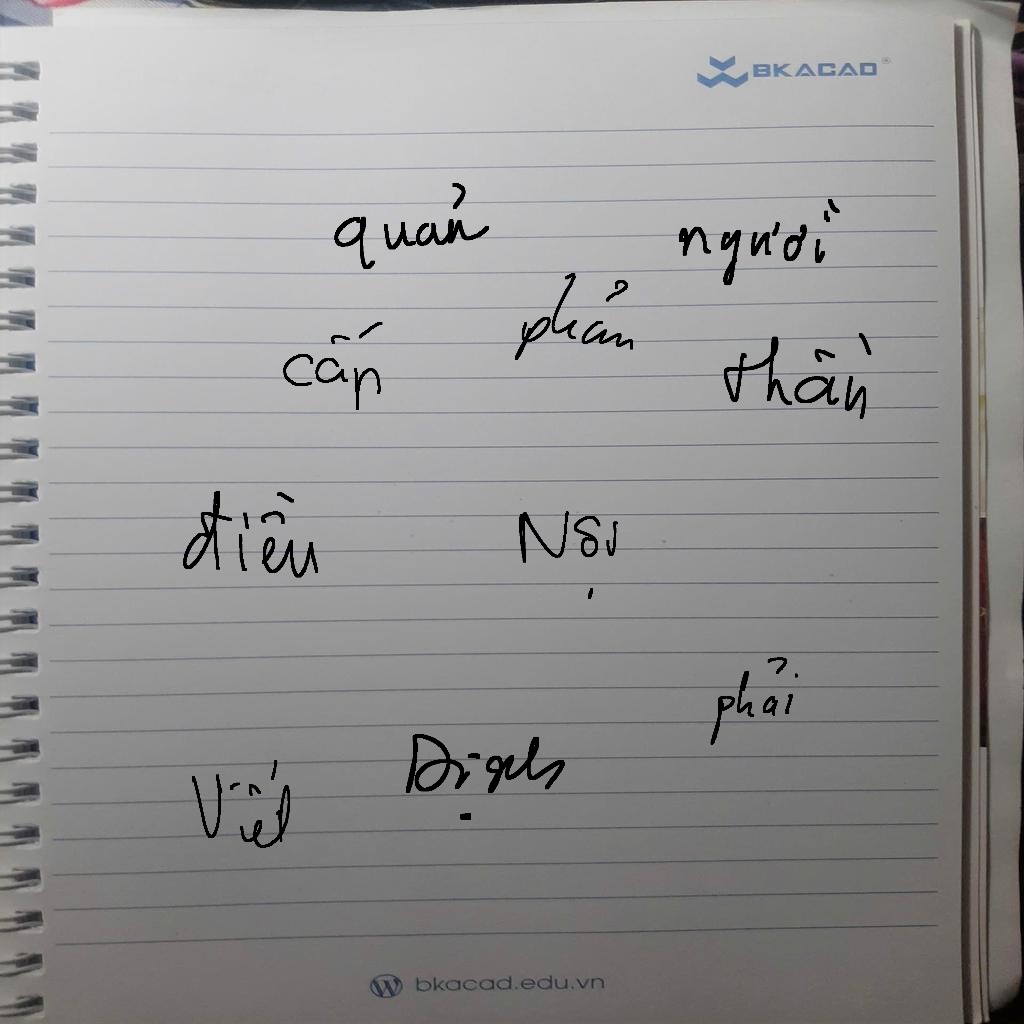 BKACAD®
quản người
phản
cấp thần
điều Nội
phải
Viết Dịch
bkacad.edu.vn